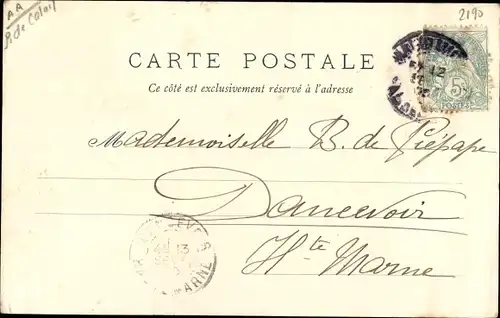 AA
2190
CARTE POSTALE
Ce côté est exclusivement réservé à l'adresse
5
Mademoiselle B. de Piépape
Dancevoir
Hte Marne